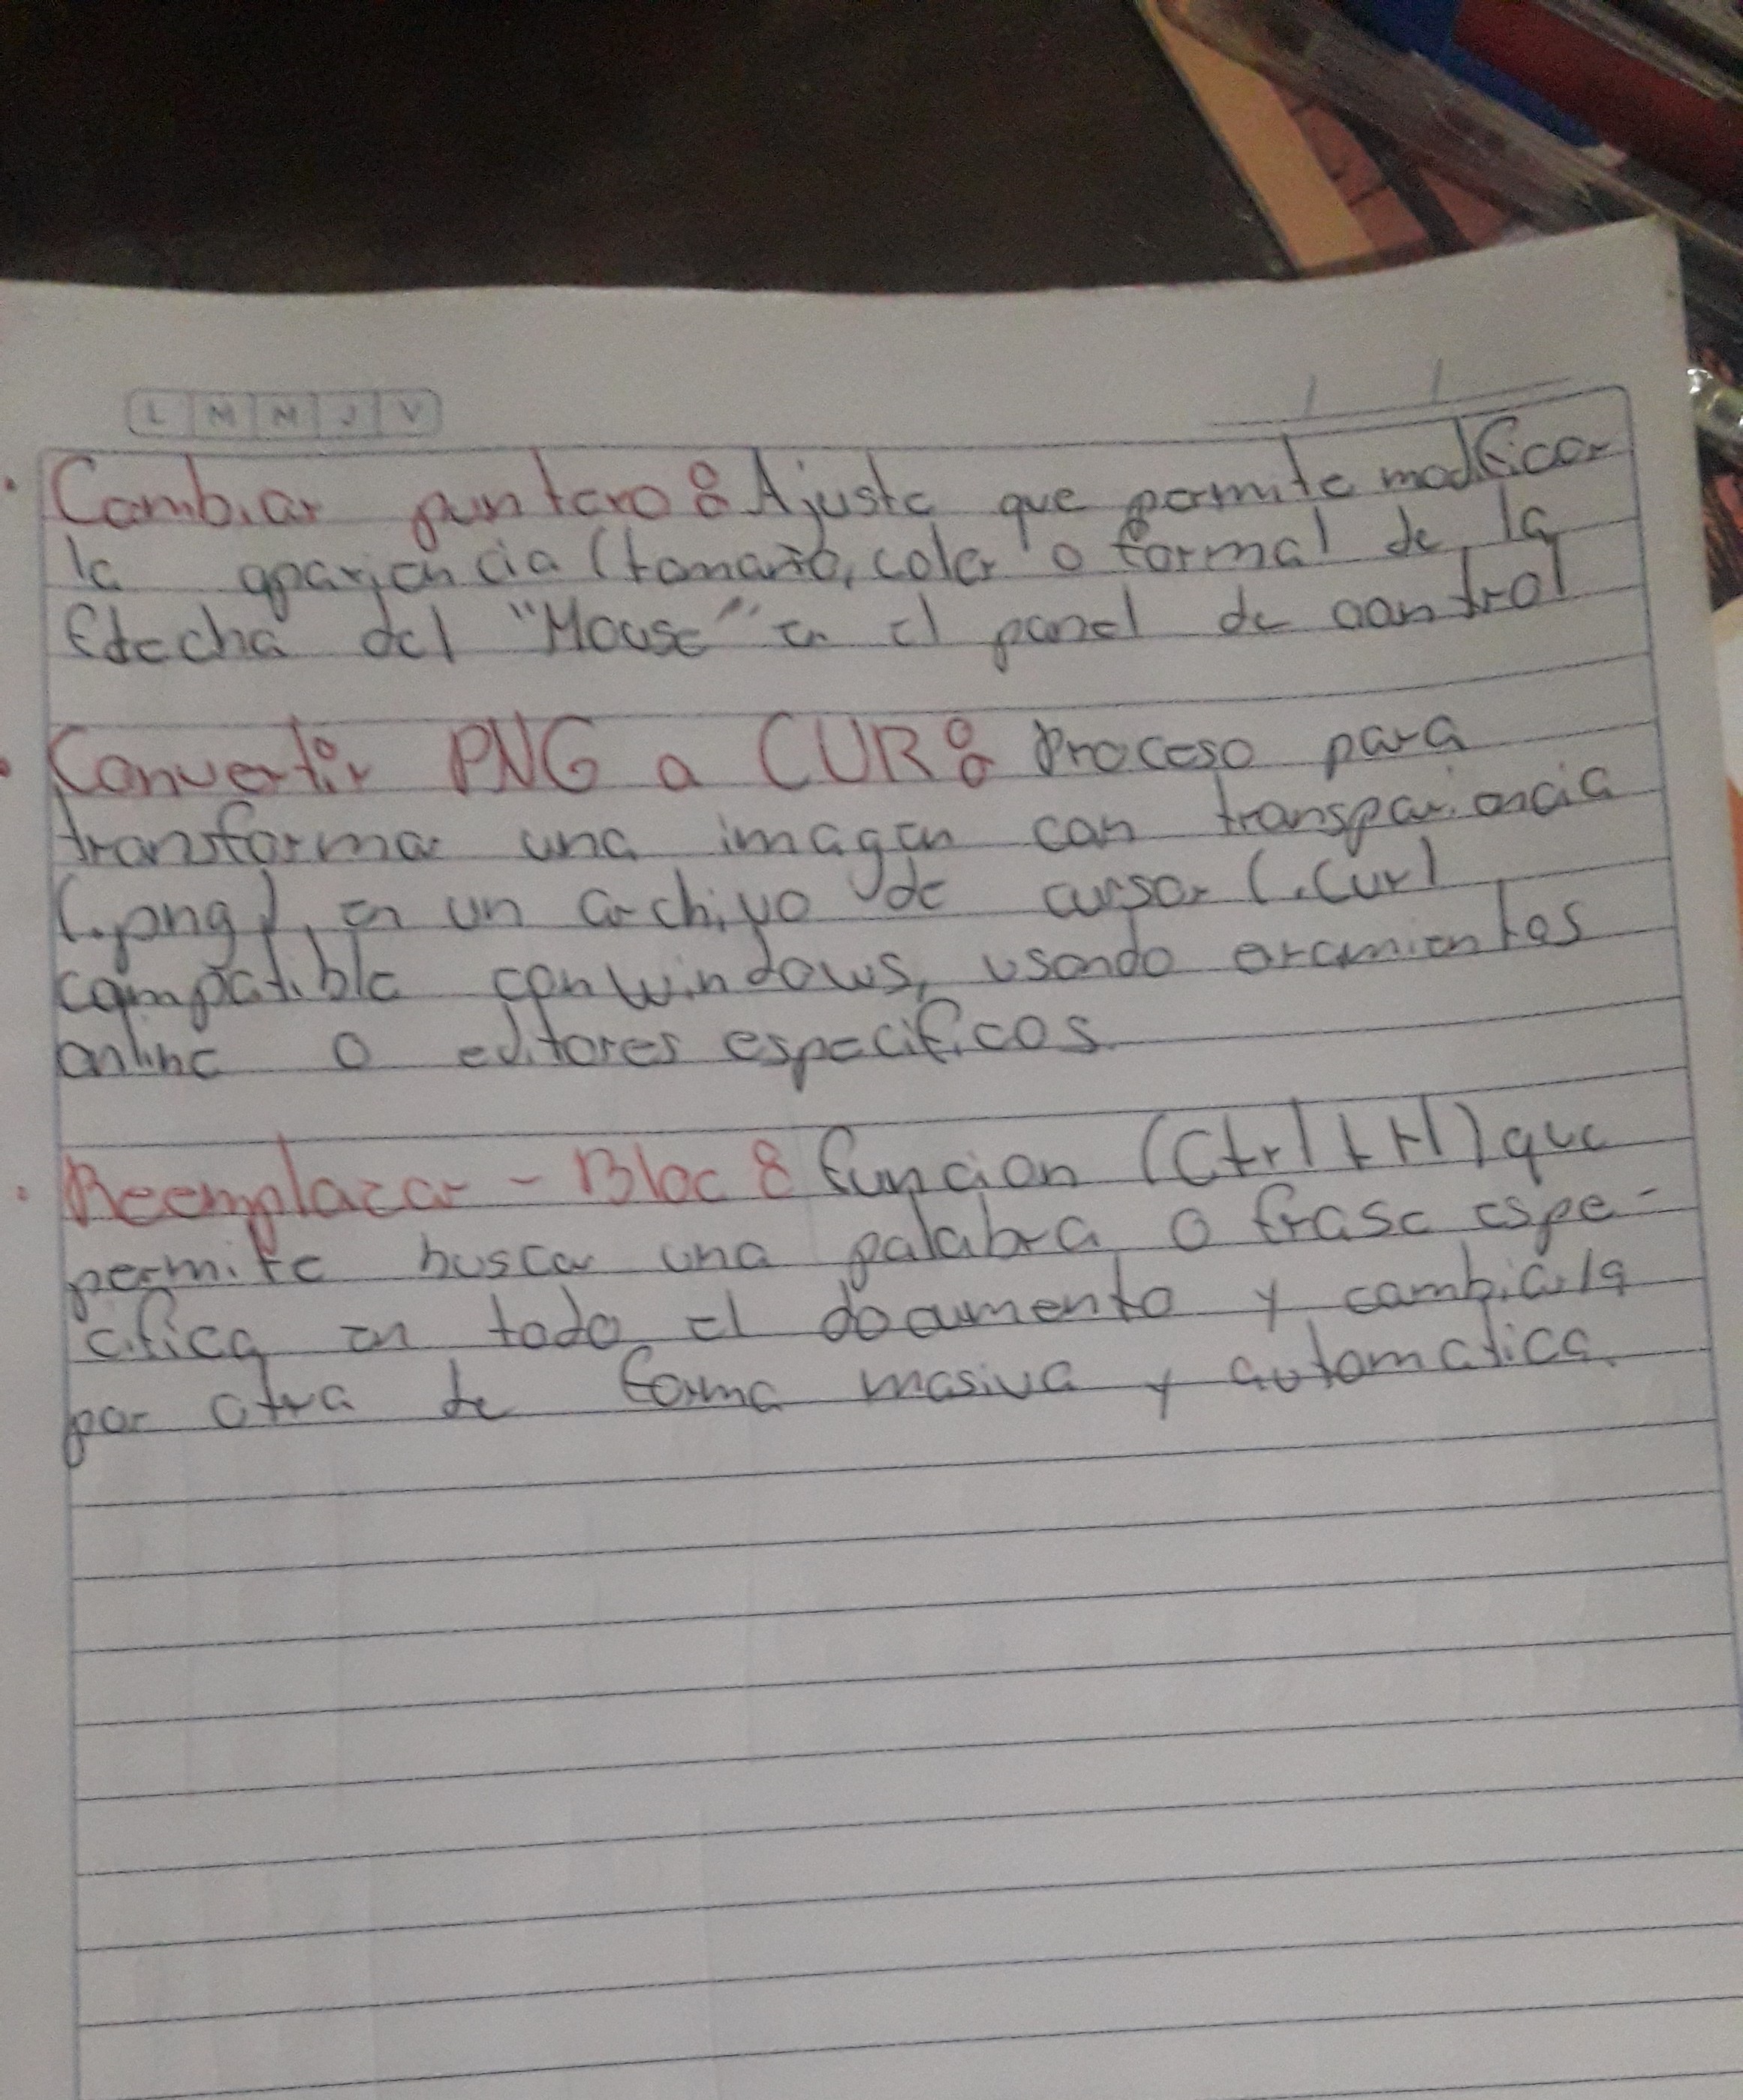 L M M J V
Cambiar puntero: Ajuste que permite modificar
la apariencia (tamaño, color o forma) de la
flecha del "Mouse" en el panel de control
Convertir PNG a CUR: Proceso para
transformar una imagen con transpariencia
(.png) en un archivo de cursor (.cur)
compatible con windows, usando eramientas
online o editores especificos.
Reemplazar - Bloc: funcion (Ctrl + H) que
permite buscar una palabra o frase espe-
cifica en todo el documento y cambiarla
por otra de forma masiva y automatica.